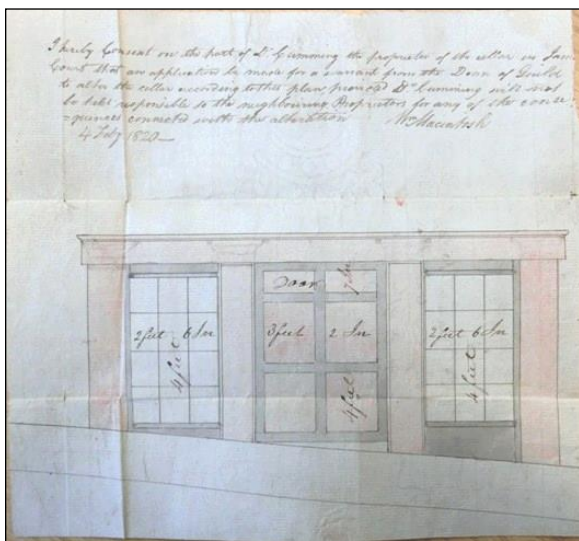 I hereby Consent on the part of Dr Cumming the proprietor of the cellar in James
Court that an application be made for a warrant from the Dean of Guild
to alter the cellar according to this plan provided Dr Cumming will not
be held responsible to the neighbouring Proprietors for any of the conse
=quences connected with the alteration Wm Macintosh
4 July 1820—
Door
2 feet 6 In
4 feet
3 feet 2 In
4 feet 7 In
2 feet 6 In
4 feet